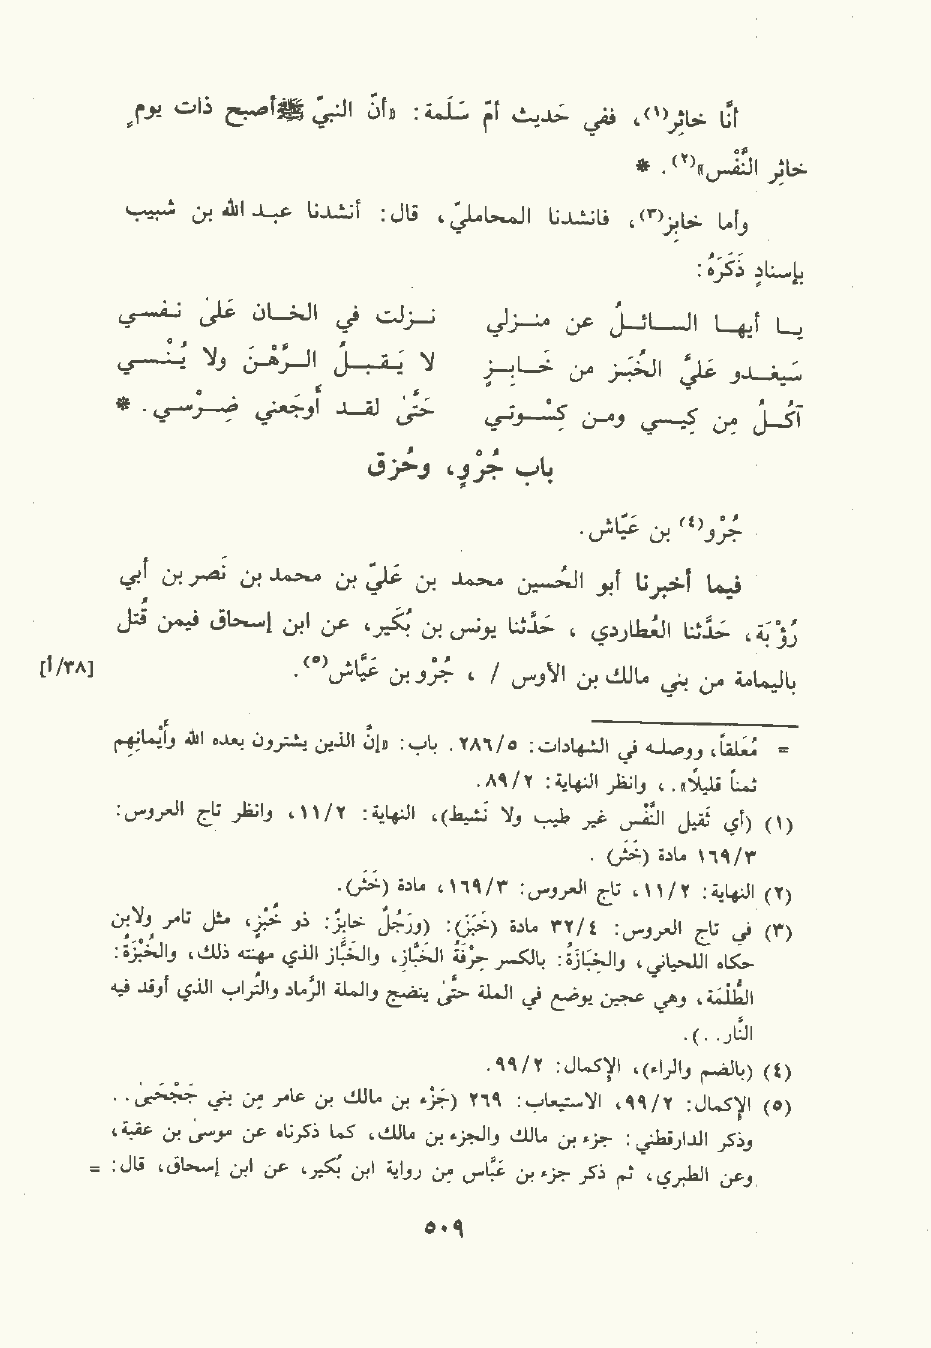 أنَّا خاثِر(١)، ففي حَديث أمّ سَلَمة: «أنّ النبيّ ﷺ أصبح ذات يومٍ
خاثِر النَّفْس»(٢). *
وأما خابِز(٣)، فانشدنا المحامليّ، قال: أنشدنا عبد الله بن شبيب
بإسنادٍ ذَكَرَهُ:
يا أيها السائلُ عن منزلي نزلت في الخان عَلىٰ نفسي
سَيغدو عَليَّ الخُبَز من خَابِزٍ لا يَقبلُ الرَّهْنَ ولا يُنْسي
آكُلُ مِن كِيسي ومن كِسْوتي حَتَّىٰ لقد أوجَعني ضِرْسي. *
باب جُرْوٍ، وحُزق
جُرْو(٤) بن عَيّاش.
فيما أخبرنا أبو الحُسين محمد بن عَليّ بن محمد بن نَصر بن أبي
رُؤْبَة، حَدَّثنا العُطاردي، حَدَّثنا يونس بن بُكَير، عن ابن إسحاق فيمن قُتل
باليمامة من بني مالك بن الأوس /، جُرْو بن عَيَّاش(٥). [٣٨/أ]
= مُعَلقاً، ووصله في الشهادات: ٢٨٦/٥. باب: «إنَّ الذين يشترون بعهد الله وأَيْمانِهم
ثمناً قليلاً».، وانظر النهاية: ٨٩/٢.
(١) (أي ثَقيل النَّفْس غير طيب ولا نَشيط)، النهاية: ١١/٢، وانظر تاج العروس:
١٦٩/٣ مادة (خَثَر).
(٢) النهاية: ١١/٢، تاج العروس: ١٦٩/٣، مادة (خَثَر).
(٣) في تاج العروس: ٣٢/٤ مادة (خَبَزَ): (ورَجُلٌ خابِزٌ: ذو خُبْزٍ، مثل تامر ولابن
حكاه اللحياني، والخِبَازَةُ: بالكسر حِرْفَةُ الخَبَّازِ، والخَبَّاز الذي مهنته ذلك، والخُبْزَةُ:
الطُّلْمَة، وهي عجين يوضع في الملة حتَّىٰ ينضج والملة الرَّماد والتُراب الذي أوقد فيه
النَّار..).
(٤) (بالضم والراء)، الإكمال: ٩٩/٢.
(٥) الإكمال: ٩٩/٢، الاستيعاب: ٢٦٩ (جَزْء بن مالك بن عامر مِن بني جَحْجَبىٰ..
وذكر الدارقطني: جزء بن مالك والجزء بن مالك، كما ذكرناه عن موسىٰ بن عقبة،
وعن الطبري، ثم ذكر جزء بن عَبَّاس مِن رواية ابن بُكير، عن ابن إسحاق، قال: =
٥٠٩